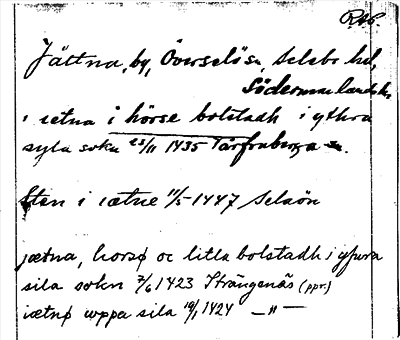 RAp.
Jättna, by, Överselö sn, Selebo hd,
Södermanlands l.
i iætna i hörse bolstadh i ythra
syla sokn 23/11 1435 Tärfruberga sn.
Sten i iætne 11/5 1447 Selaön
jætna, horsø oc litla bolstadh i yþura
sila sokn 7/6 1423 Strängenäs (ppr.)
iætnø uppa sila 19/1 1424 — " —